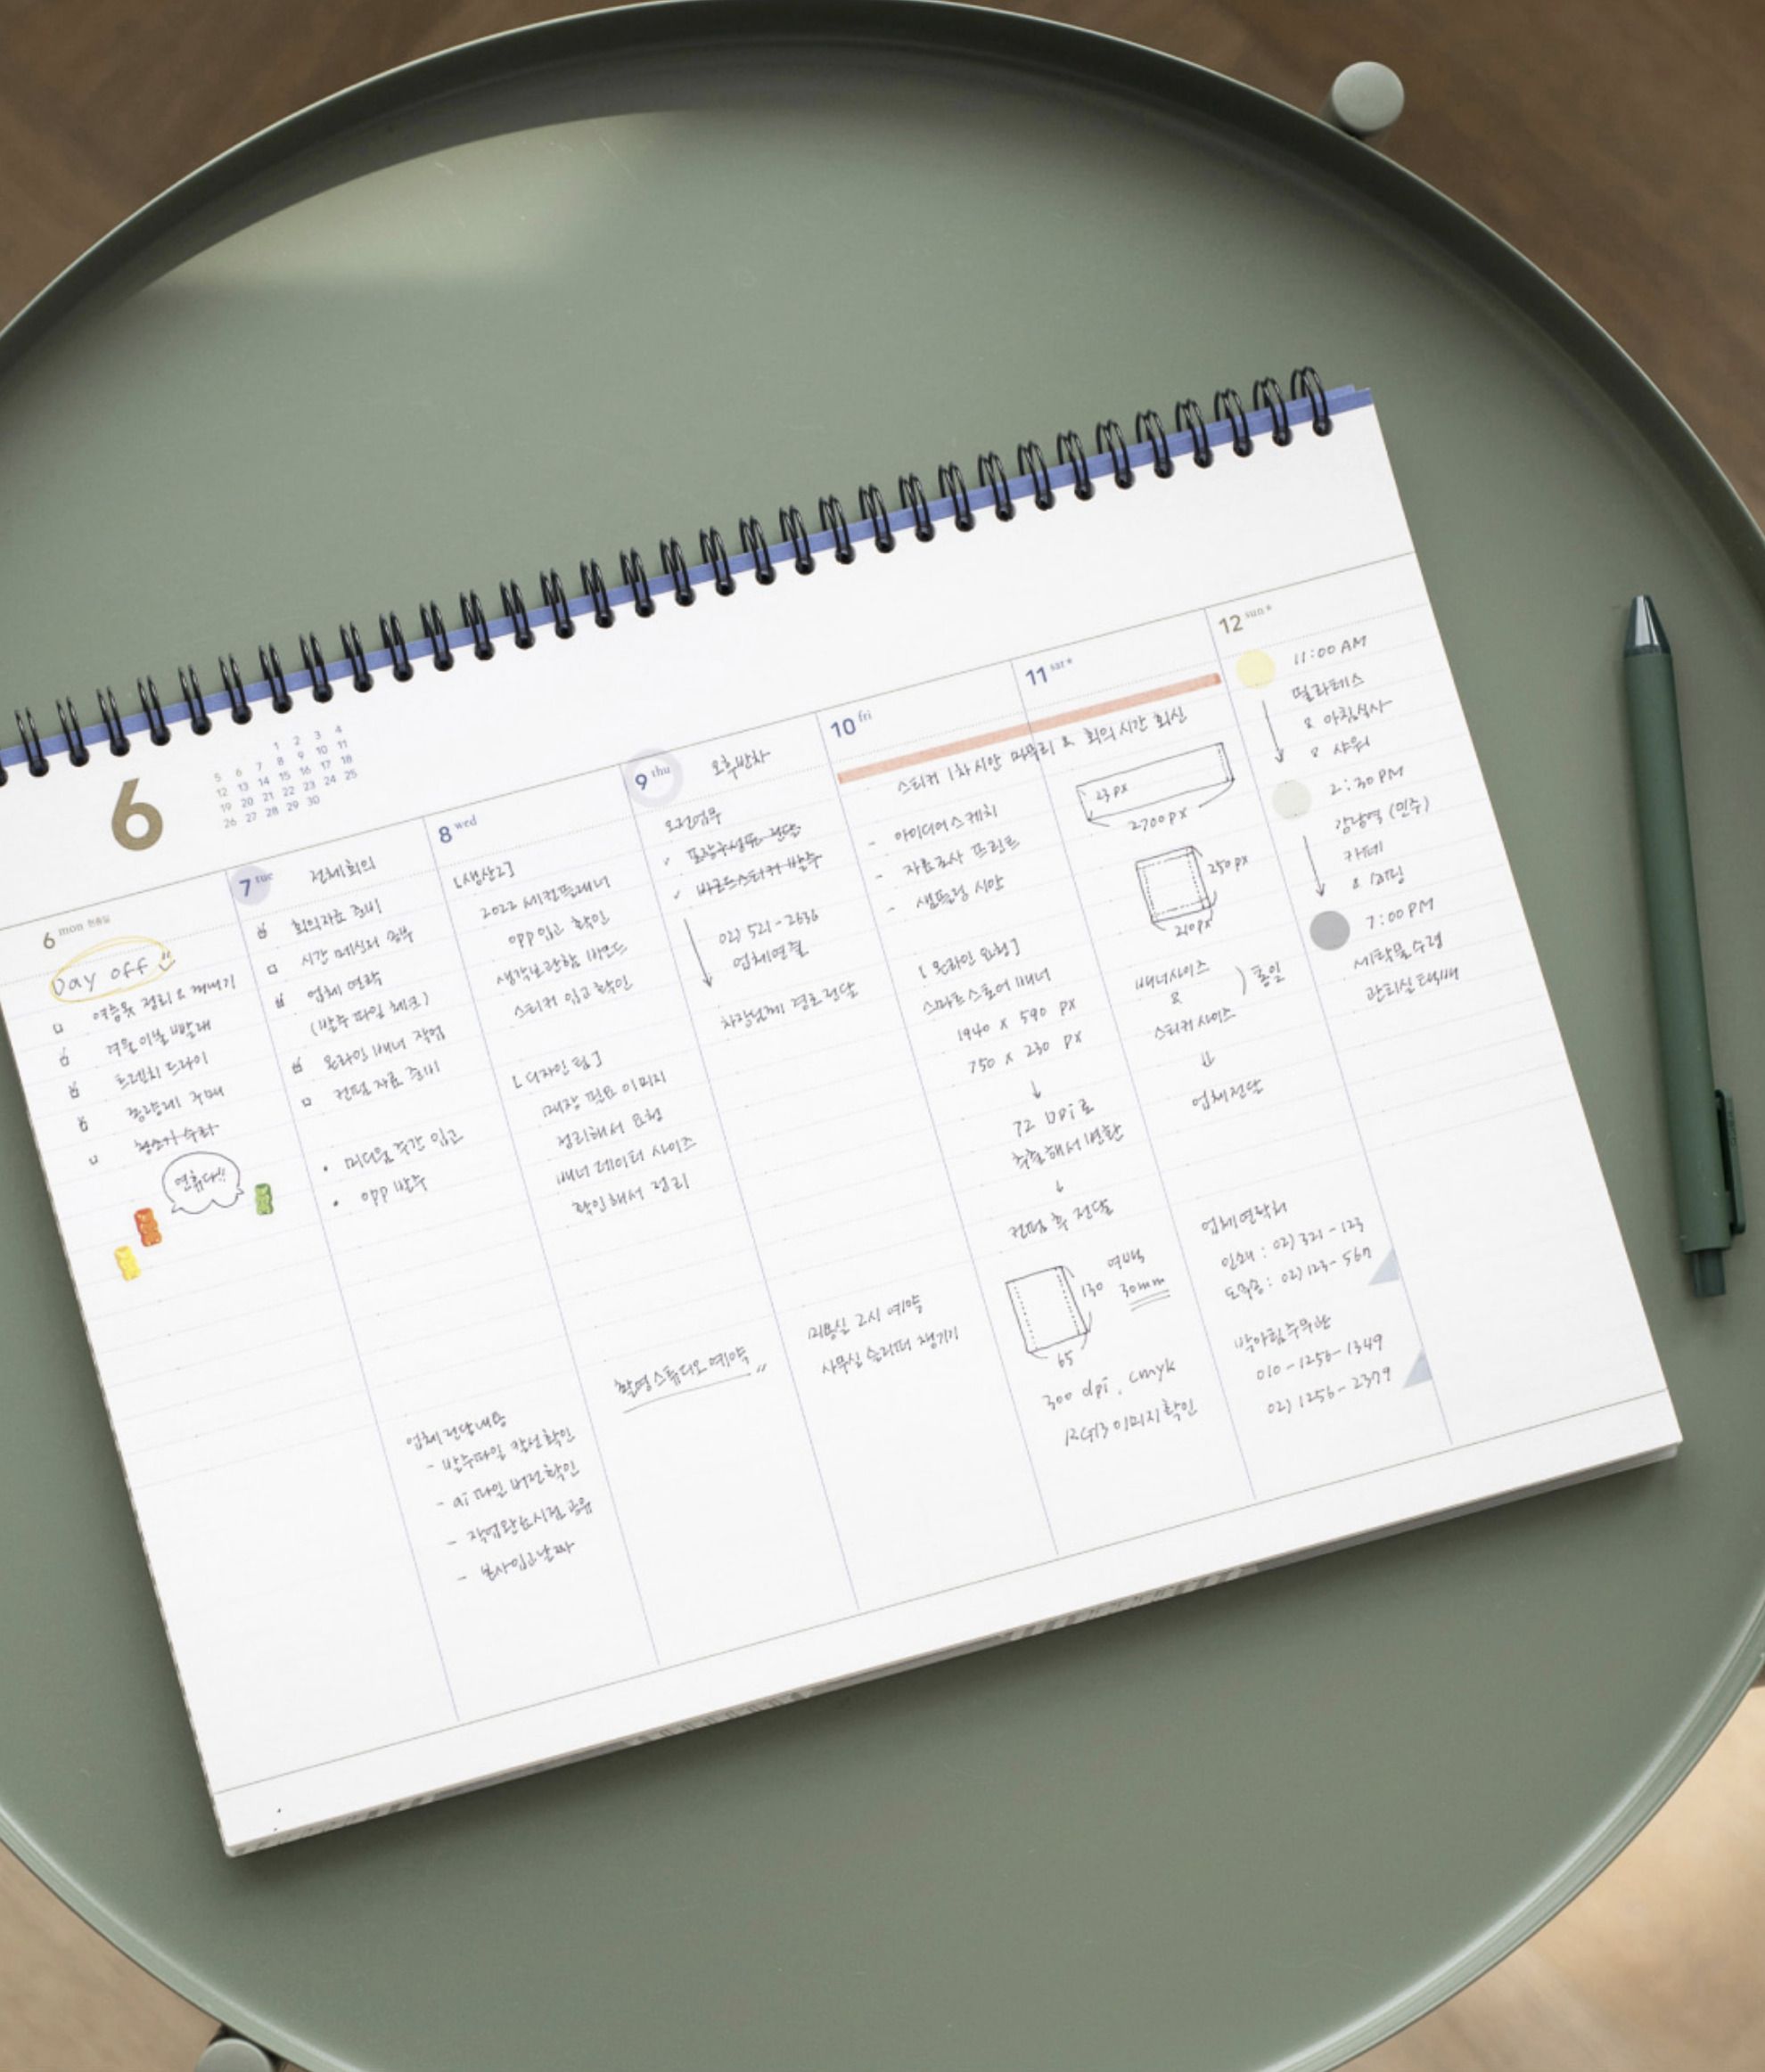 6
1 2 3 4
5 6 7 8 9 10 11
12 13 14 15 16 17 18
19 20 21 22 23 24 25
26 27 28 29 30
6 mon 현충일
Day off
여름옷 정리 & 꺼내기
겨울이불 빨래
트렌치 드라이
종량제 구매
청소기 수리
연휴다!!
7 tue
전체회의
회의자료 준비
시간 메신저 송부
업체 연락
(발주 파일 체크)
온라인 배너 작업
컨펌 자료 준비
• 미디움 주간 입고
• opp 발주
업체전달내용
- 발주파일 칼선확인
- ai 파일 버전확인
- 작업완료시점 공유
- 본사입고날짜
8 wed
[생산2]
2022 세컨플래너
opp 입고 확인
생각보관함 밴드
스티커 입고 확인
[디자인 팀]
매장 필요 이미지
정리해서 요청
배너 데이터 사이즈
확인해서 정리
촬영스튜디오 예약
9 thu
오후반차
오전업무
포장구성표 전달
바코드스티커 발주
02) 521-2636
업체연결
차장님께 경로전달
미용실 2시 예약
사무실 슬리퍼 챙기기
10 fri
스티커 1차 시안 마무리 & 회의시간 회신
- 아이디어스케치
- 자료조사 프린트
- 샘플링 시안
[온라인 요청]
스마트스토어 배너
1940 x 590 px
750 x 230 px
↓
72 DPI로
추출해서 변환
↓
컨펌 후 전달
여백
130 30mm
65
300 dpi, cmyk
12시13 이미지확인
11 sat
23 px
2700 px
250 px
210 px
배너사이즈
&
스티커 사이즈
) 통일
⇈
업체전달
업체연락처
인쇄 : 02) 321-123
도무송 : 02) 123-567
박아림
010-1256-1349
02) 1256-2379
12 sun
11:00 AM
필라테스
& 아침식사
& 샤워
2:30 PM
강남역 (민주)
카페
& 쇼핑
7:00 PM
세탁물 수령
관리실 택배